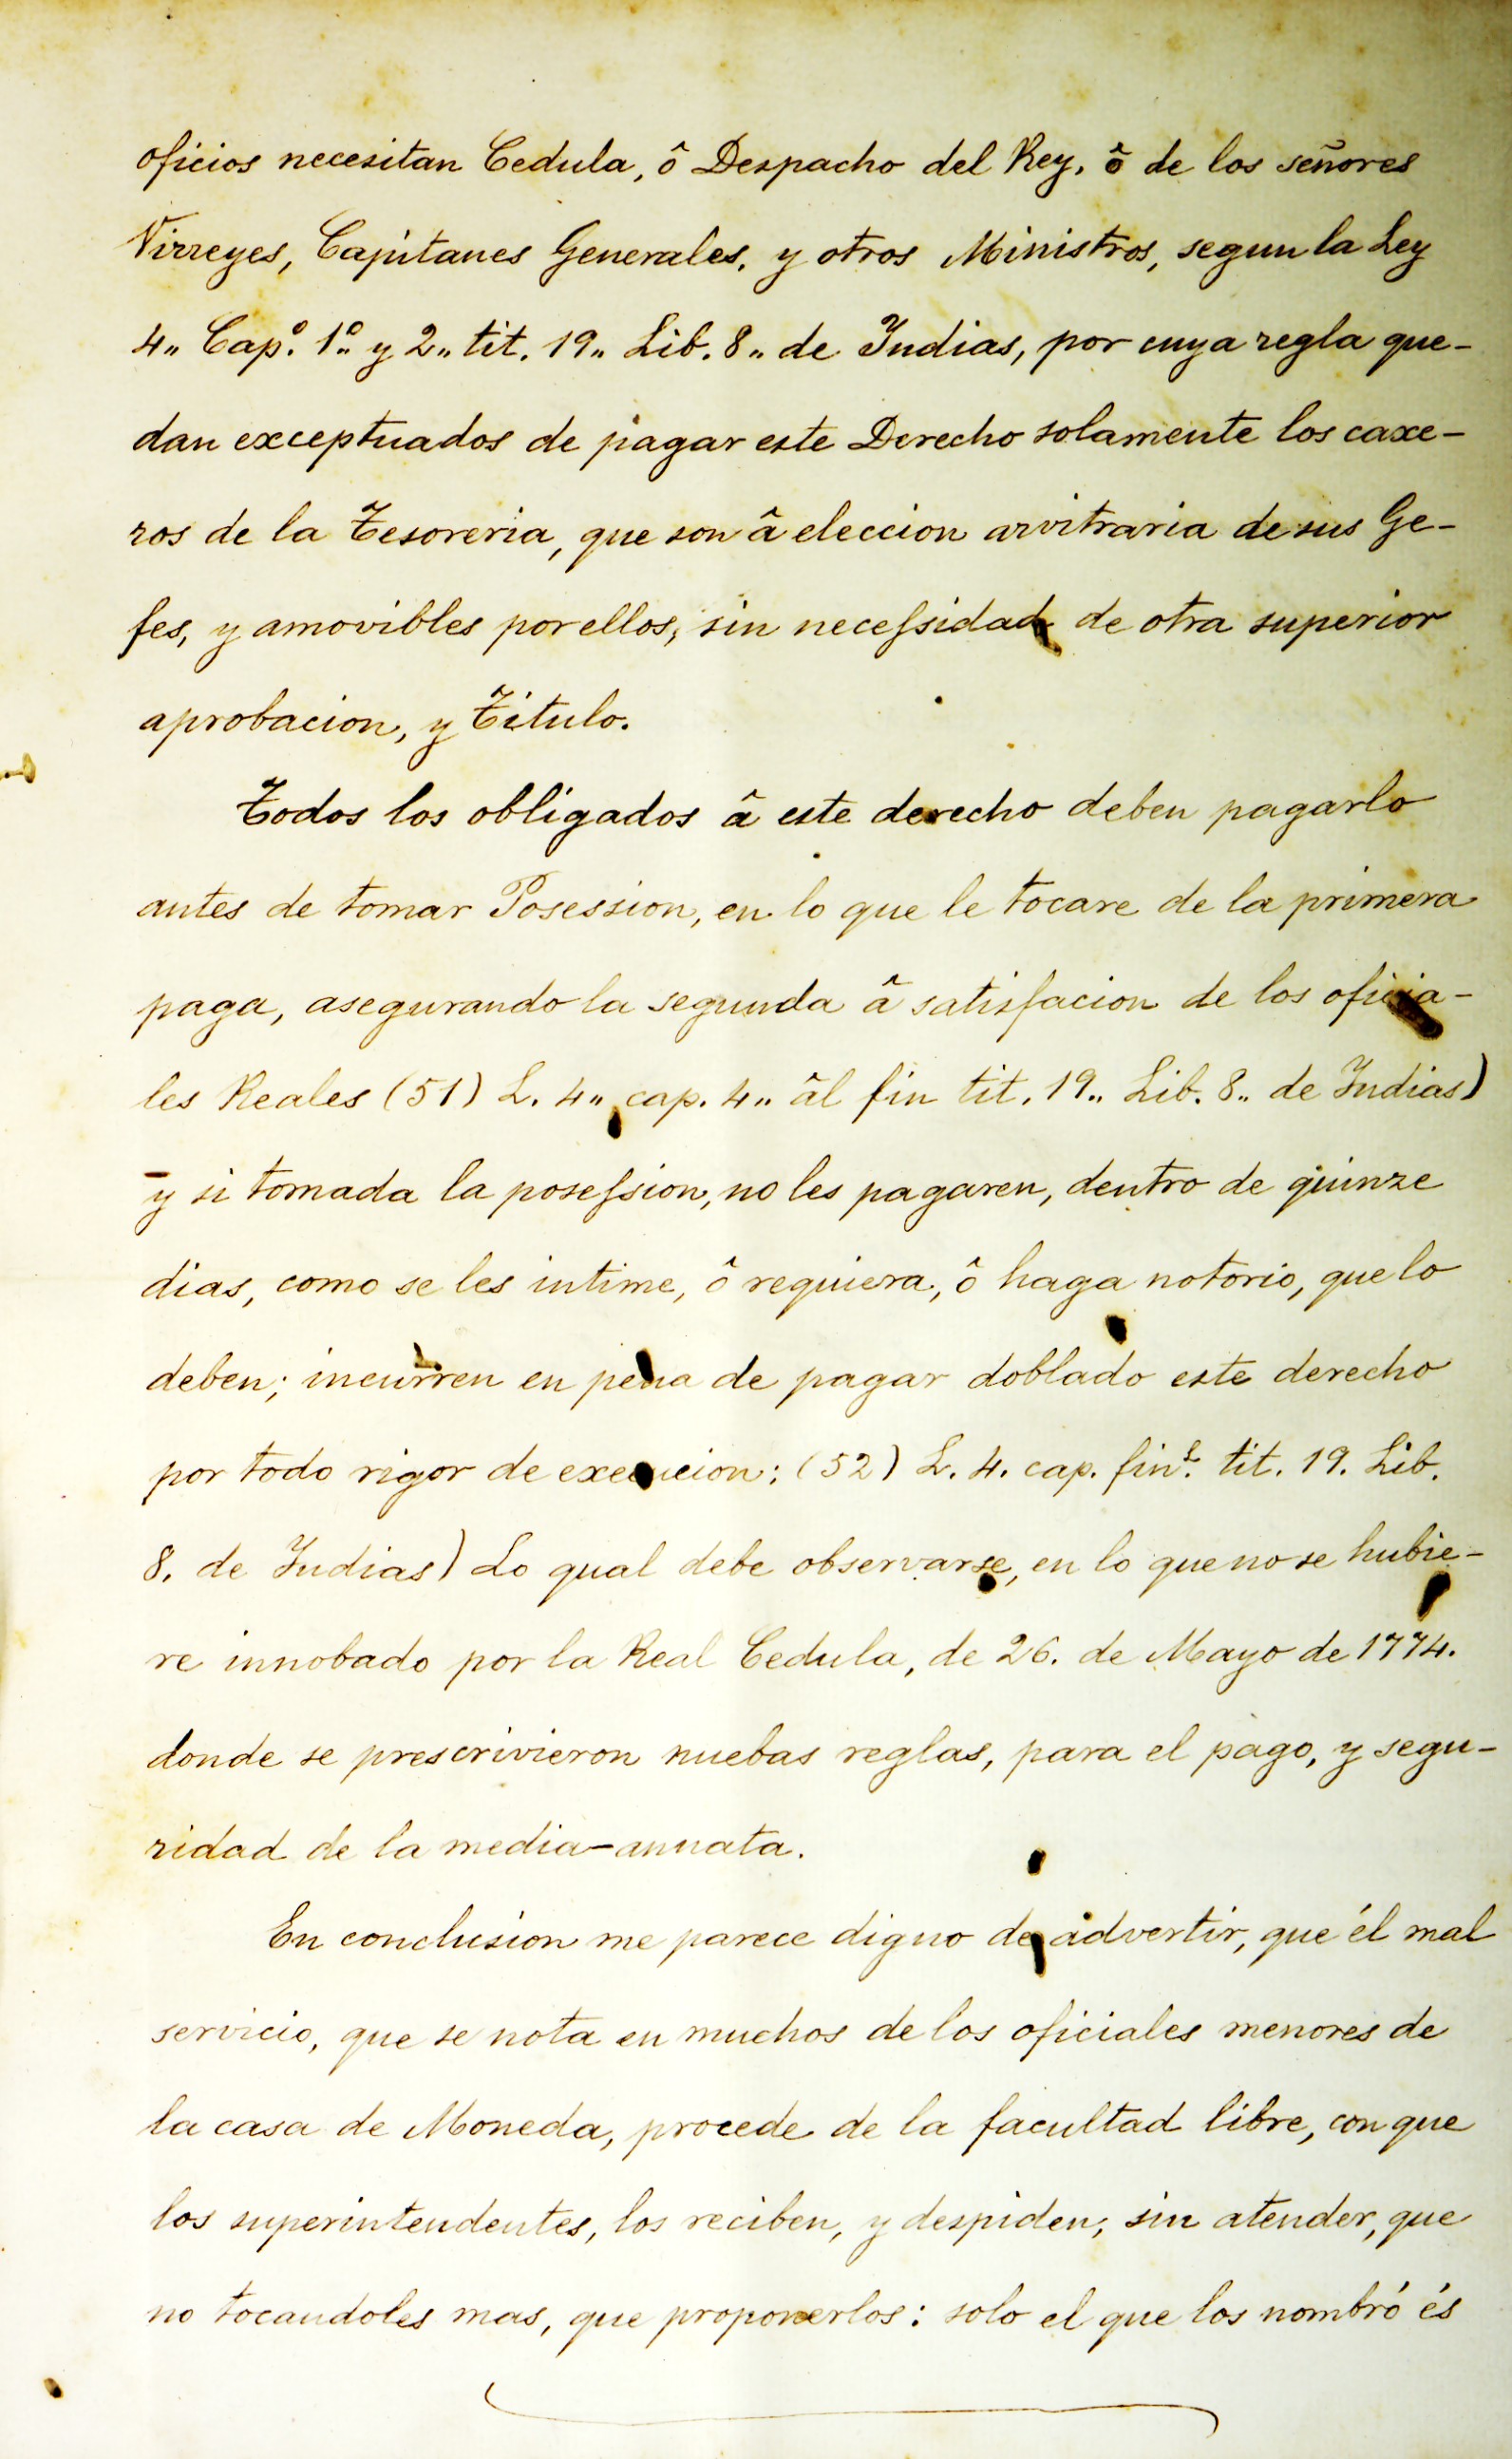 oficios necesitan Cedula, ô Despacho del Rey, ô de los señores
Virreyes, Capitanes Generales, y otros Ministros, segun la Ley
4,, Capº. 1º. y 2,, tit. 19,, Lib. 8,, de Indias, por cuya regla que-
dan exceptuados de pagar este Derecho solamente los caxe-
ros de la Tesoreria, que son â eleccion arvitraria de sus Ge-
fes, y amovibles por ellos, sin neceſsidad de otra superior
aprobacion, y Titulo.
Todos los obligados â este derecho deben pagarlo
antes de tomar Posession, en lo que le tocare de la primera
paga, asegurando la segunda â satisfacion de los oficia-
les Reales (51) L. 4,, cap. 4,, âl fin tit. 19,, Lib. 8,, de Indias)
y si tomada la poseſsion, no les pagaren, dentro de quinze
dias, como se les intime, ô requiera, ô haga notorio, que lo
deben; incurren en pena de pagar doblado este derecho
por todo rigor de execucion: (52) L. 4. cap. finˡ. tit. 19. Lib.
8. de Indias) Lo qual debe observarse, en lo que no se hubie-
re innobado por la Real Cedula, de 26. de Mayo de 1774.
donde se prescrivieron nuebas reglas, para el pago, y segu-
ridad de la media-annata.
En conclusion me parece digno de advertir, que él mal
servicio, que se nota en muchos de los oficiales menores de
la casa de Moneda, procede de la facultad libre, con que
los superintendentes, los reciben, y despiden; sin atender, que
no tocandoles mas, que proponerlos: solo el que los nombró és